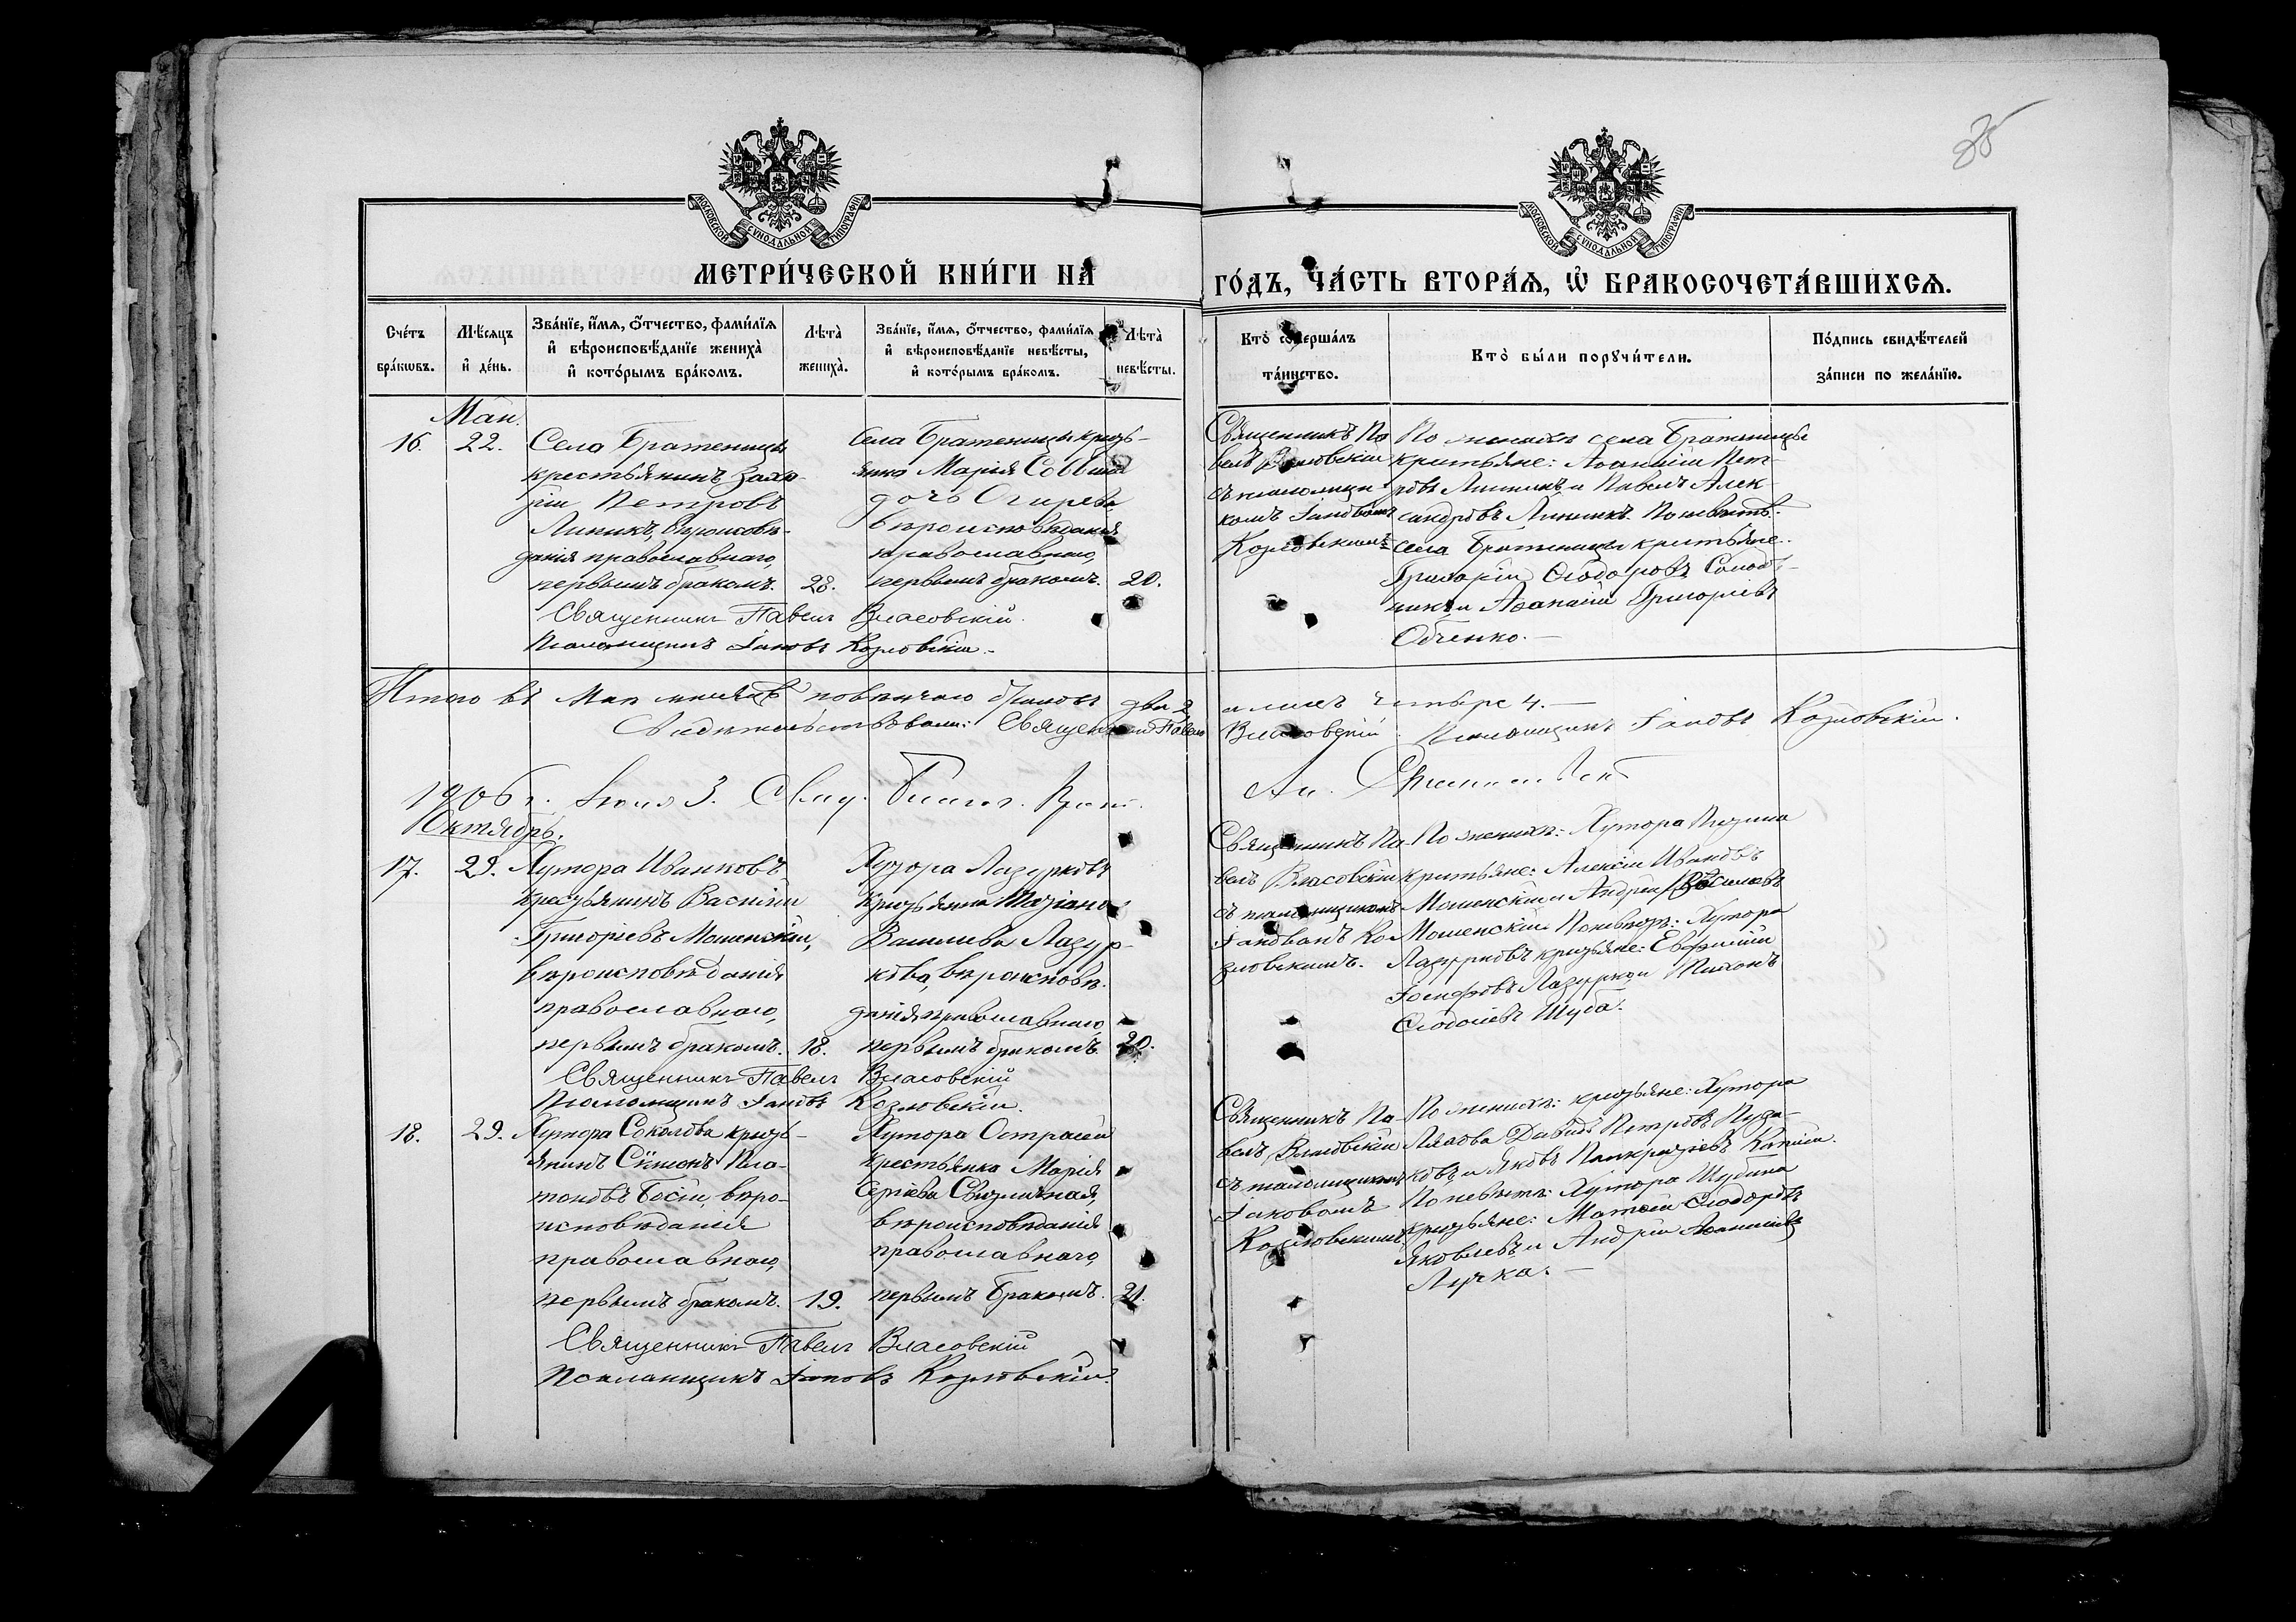 35
МОСКОВСКОЙ СУНОДАЛЬНОЙ ТИПОГРАФІИ
МОСКОВСКОЙ СУНОДАЛЬНОЙ ТИПОГРАФІИ
МЕТРИ́ЧЕСКОЙ КНИ́ГИ НА
ГО́ДЪ, ЧА́СТЬ ВТОРА́Я, Ѿ БРАКОСОЧЕТА́ВШИХСЯ.
Сче́тъ
бра́кѡвъ.
Мѣ́сяцъ
и҆ де́нь.
Зва́нїе, и҆́мя, ѻ҆́тчество, фами́лїя
и҆ вѣроисповѣ́данїе жениха̀
и҆ кото́рымъ бра́комъ.
Лѣта̀
жениха̀.
Зва́нїе, и҆́мя, ѻ҆́тчество, фами́лїя
и҆ вѣроисповѣ́данїе невѣ́сты,
и҆ кото́рымъ бра́комъ.
Лѣта̀
невѣ́сты.
Кто̀ соверша́лъ
та́инство.
Кто̀ бы́ли порꙋчи́тели.
По́дпись свидѣ́телей
за́писи по жела́нїю.
Маи.
16.
22.
Села Братеницы
крестьянинъ Заха-
рій Петровъ
Линникъ, вѣроисповѣ-
данія православнаго,
первымъ бракомъ.
28.
Села Братеницы кресть-
янка Марія Саввина
дочь Огирева
вѣроисповѣданія
православнаго,
первымъ бракомъ.
20.
Священникъ Па
велъ Власовскій
съ псаломщи-
комъ Іаковомъ
Козловскимъ
По женихѣ села Братеницы
крестьяне: Аѳанасій Пет-
ровъ Линникъ и Павелъ Алек-
сандровъ Линникъ. По невѣстѣ:
села Братеницы крестьяне:
Григорій Ѳеодоровъ
и Аѳанасій Григорьевъ
Священникъ Павелъ Власовскій.
Псаломщикъ Іаковъ Козловскій.
Итого въ Маѣ мѣсяцѣ повѣнчано браковъ два 2
а лицъ четыре 4.
Свидѣтельствовали: Священникъ Павелъ
Власовскій Псаломщикъ Іаковъ Козловскій.
1906 г. Іюля 3. Свид. Благоч.
Октябрь.
17.
29.
Хутора Иванковъ
крестьянинъ Василій
Григорьевъ Мошенскій,
вѣроисповѣданія
православнаго,
первымъ бракомъ.
18.
Хутора Лазурковъ
крестьянка
Васильева Лазур-
кова, вѣроисповѣ-
данія православнаго,
первымъ бракомъ.
20.
Священникъ Па-
велъ Власовскій
съ псаломщикомъ
Іаковомъ Ко-
зловскимъ.
По женихѣ: Хутора
крестьяне: Алексій Ивановъ
Мошенскій и Андрей Васильевъ
Мошенскій. По невѣстѣ: Хутора
Лазурковъ крестьяне: Евфимій
Іосифовъ Лазурко и Тихонъ
Шуба.
Священникъ Павелъ Власовскій
Псаломщикъ Іаковъ Козловскій.
18.
29.
Хутора Соколова кресть-
янинъ Сѵмеонъ Пла-
тоновъ вѣро-
исповѣданія
православнаго,
первымъ бракомъ.
19.
Хутора
крестьянка Марія
Сергіева
вѣроисповѣданія
православнаго,
первымъ бракомъ.
21.
Священникъ Па-
велъ Власовскій
съ псаломщикомъ
Іаковомъ
Козловскимъ.
По женихѣ: крестьяне: Хутора
Давидъ Петровъ
и Яковъ Панкратіевъ
По невѣстѣ: Хутора Шубина
крестьяне: Матѳей Ѳеодоровъ
Яковлевъ и Андрей
Лычка.
Священникъ Павелъ Власовскій
Псаломщикъ Іаковъ Козловскій.